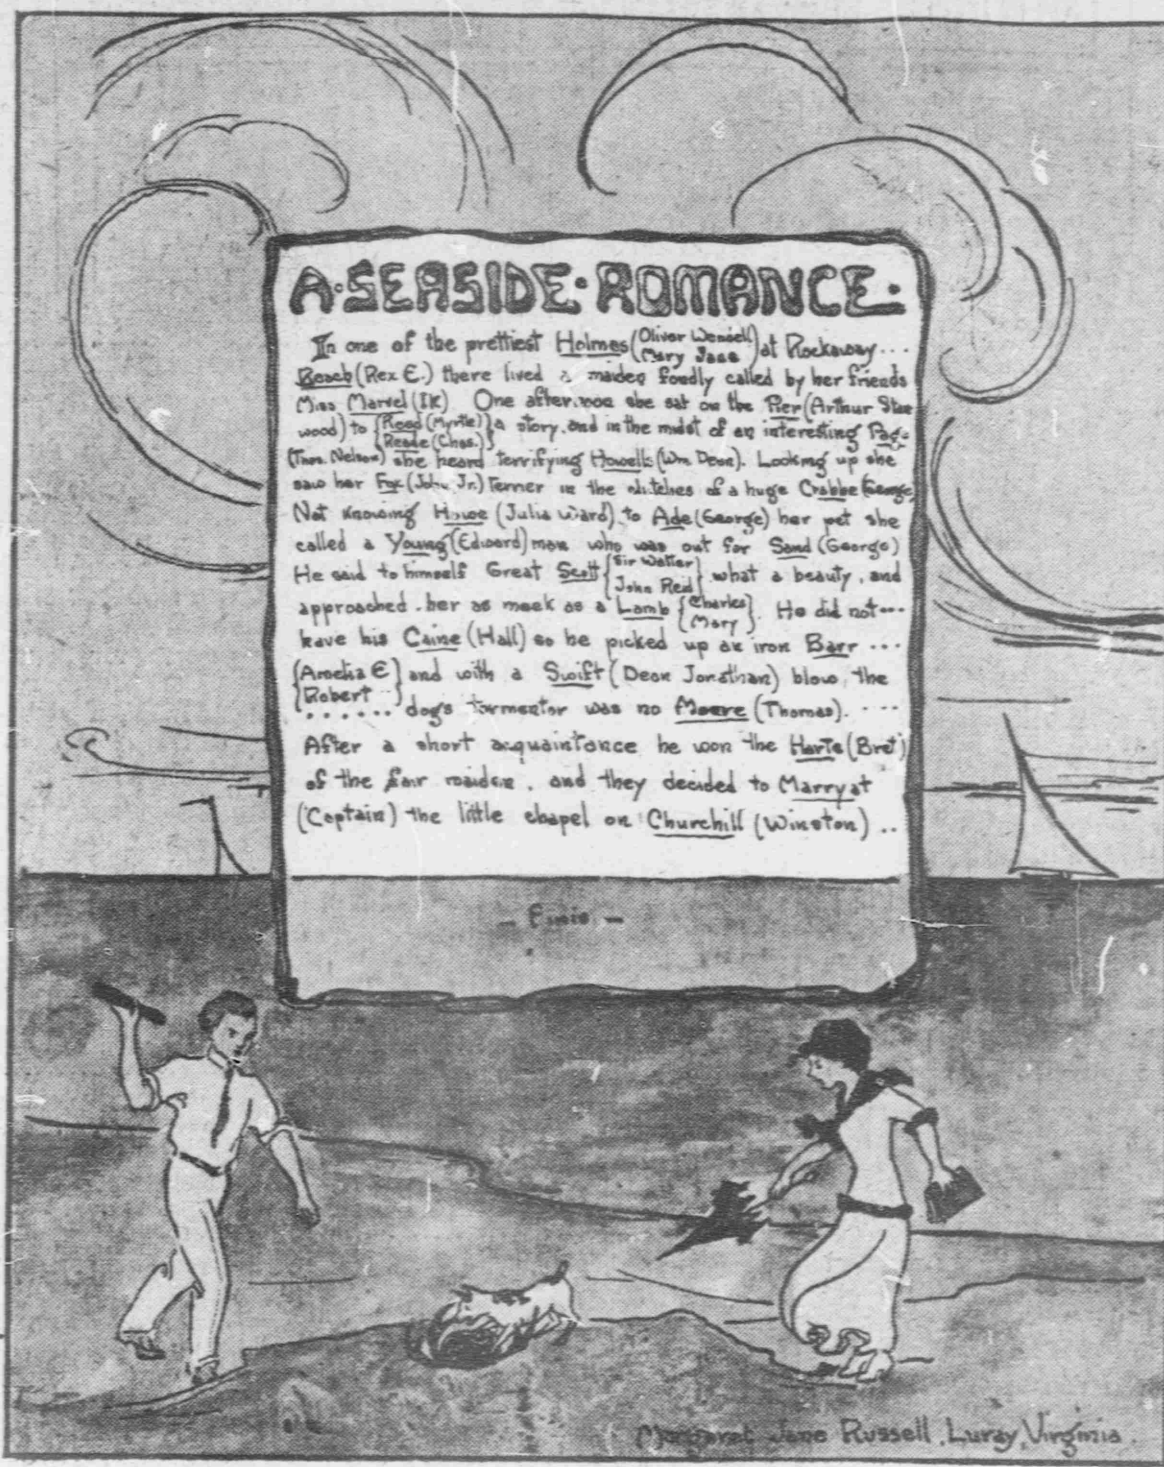 A·SEASIDE·ROMANCE·
In one of the prettiest Holmes (Oliver Wendell
Mary Jane) at Rockaway...
Beach (Rex E.) there lived a maiden fondly called by her friends
Miss Marvel (IK) One afternoon she sat on the Pier (Arthur Stan
wood) to {Reed (Myrtle)
Reade (Chas.)} a story, and in the midst of an interesting Pag-
(Thos. Nelson) she heard terrifying Howells (Wm Dean). Looking up she
saw her Fox (John, Jr.) Terrier in the clutches of a huge Crabbe (George)
Not knowing Howe (Julia Ward) to Ade (George) her pet she
called a Young (Edward) man who was out for Sand (George)
He said to himself Great Scott {Sir Walter
John Reid} what a beauty, and
approached her as meek as a Lamb {Charles
Mary}. He did not...
have his Caine (Hall) so he picked up an iron Barr ...
{Amelia E
Robert} and with a Swift (Dean Jonathan) blow, the
...... dogs tormentor was no Moore (Thomas). ....
After a short acquaintance he won the Harte (Bret)
of the fair maiden, and they decided to Marryat
(Captain) the little chapel on Churchill (Winston) ..
— Finis —
Margaret Jane Russell, Luray, Virginia.